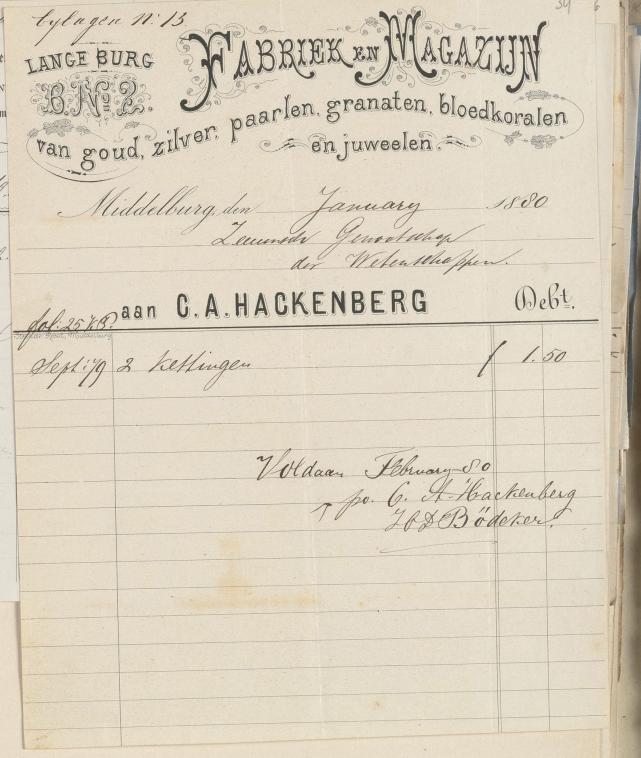 bylagen No. 13
LANGE BURG
B. No. 2.
FABRIEK EN MAGAZIJN
van goud, zilver, paarlen, granaten, bloedkoralen
en juweelen.
Middelburg, den January 1880
Zeeuwsch Genootschap
der Wetenschappen.
aan C. A. HACKENBERG Debt.
fol. 25 K.B.
Sept. 79 2 Kettingen f 1.50
Voldaan February 80
po. C. A. Hackenberg
Bödeker.